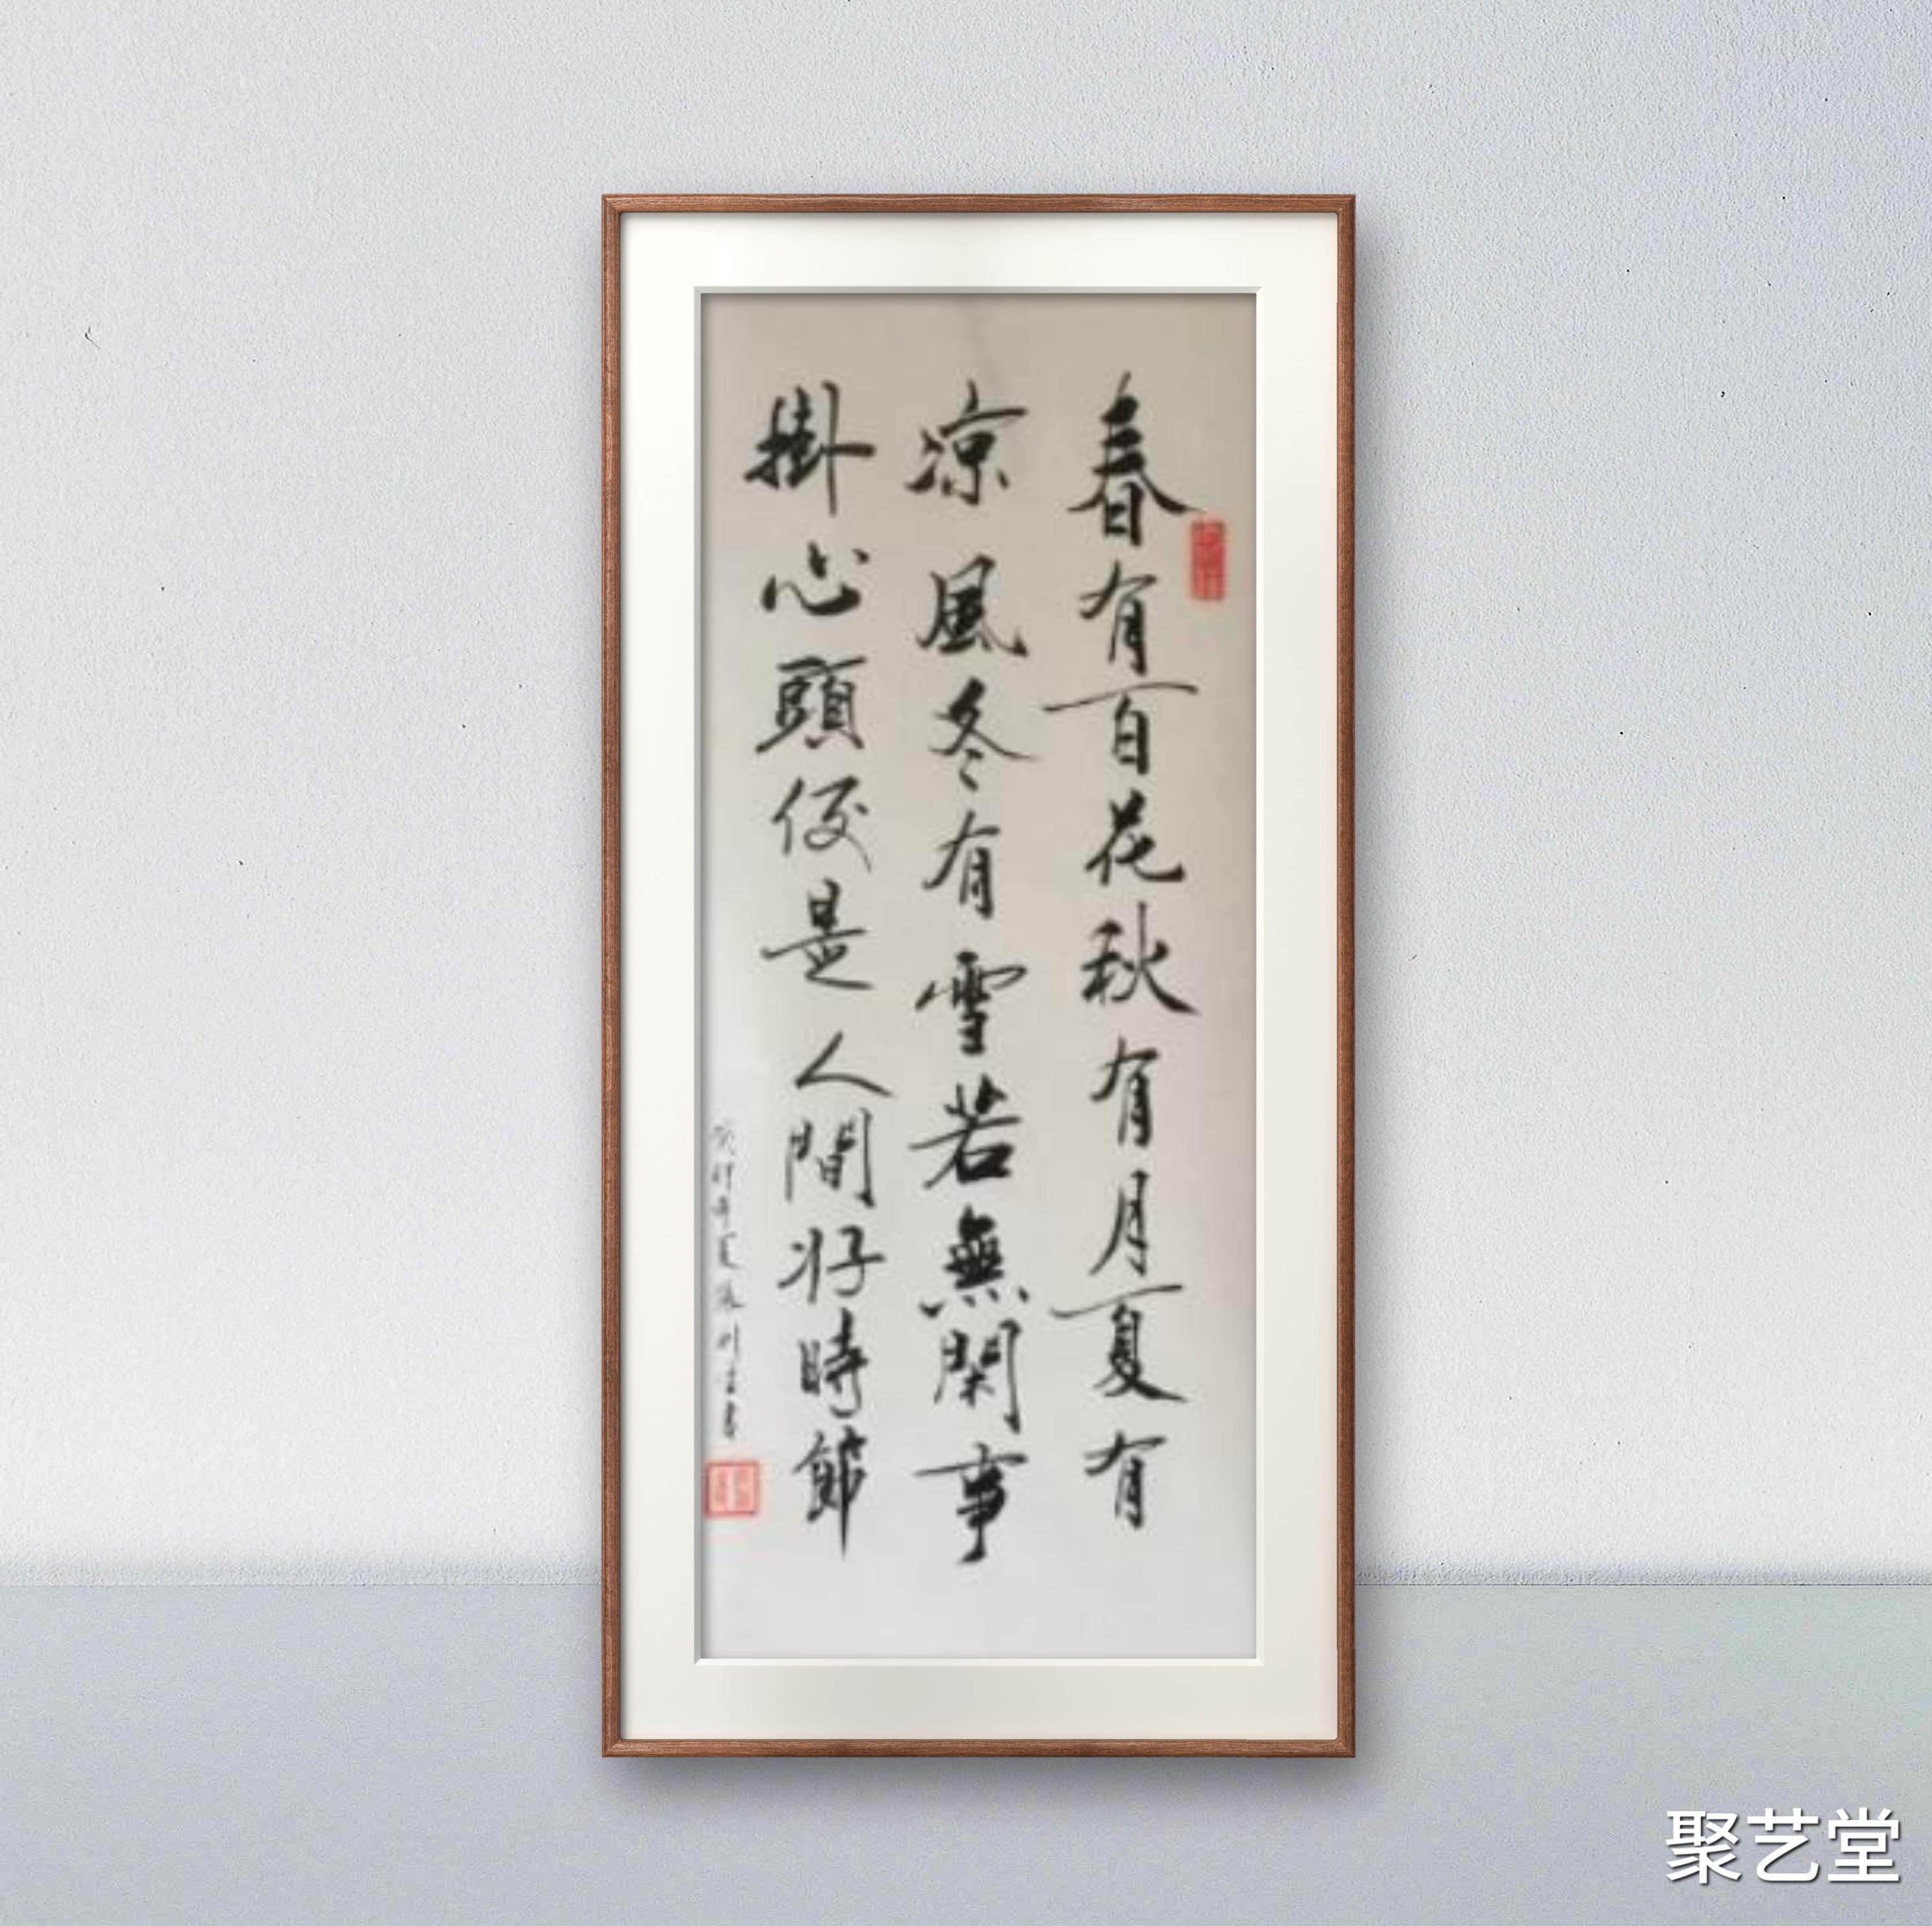 春有百花秋有月夏有
凉風冬有雪若無閑事
掛心頭便是人間好時節
癸卯年夏
聚艺堂